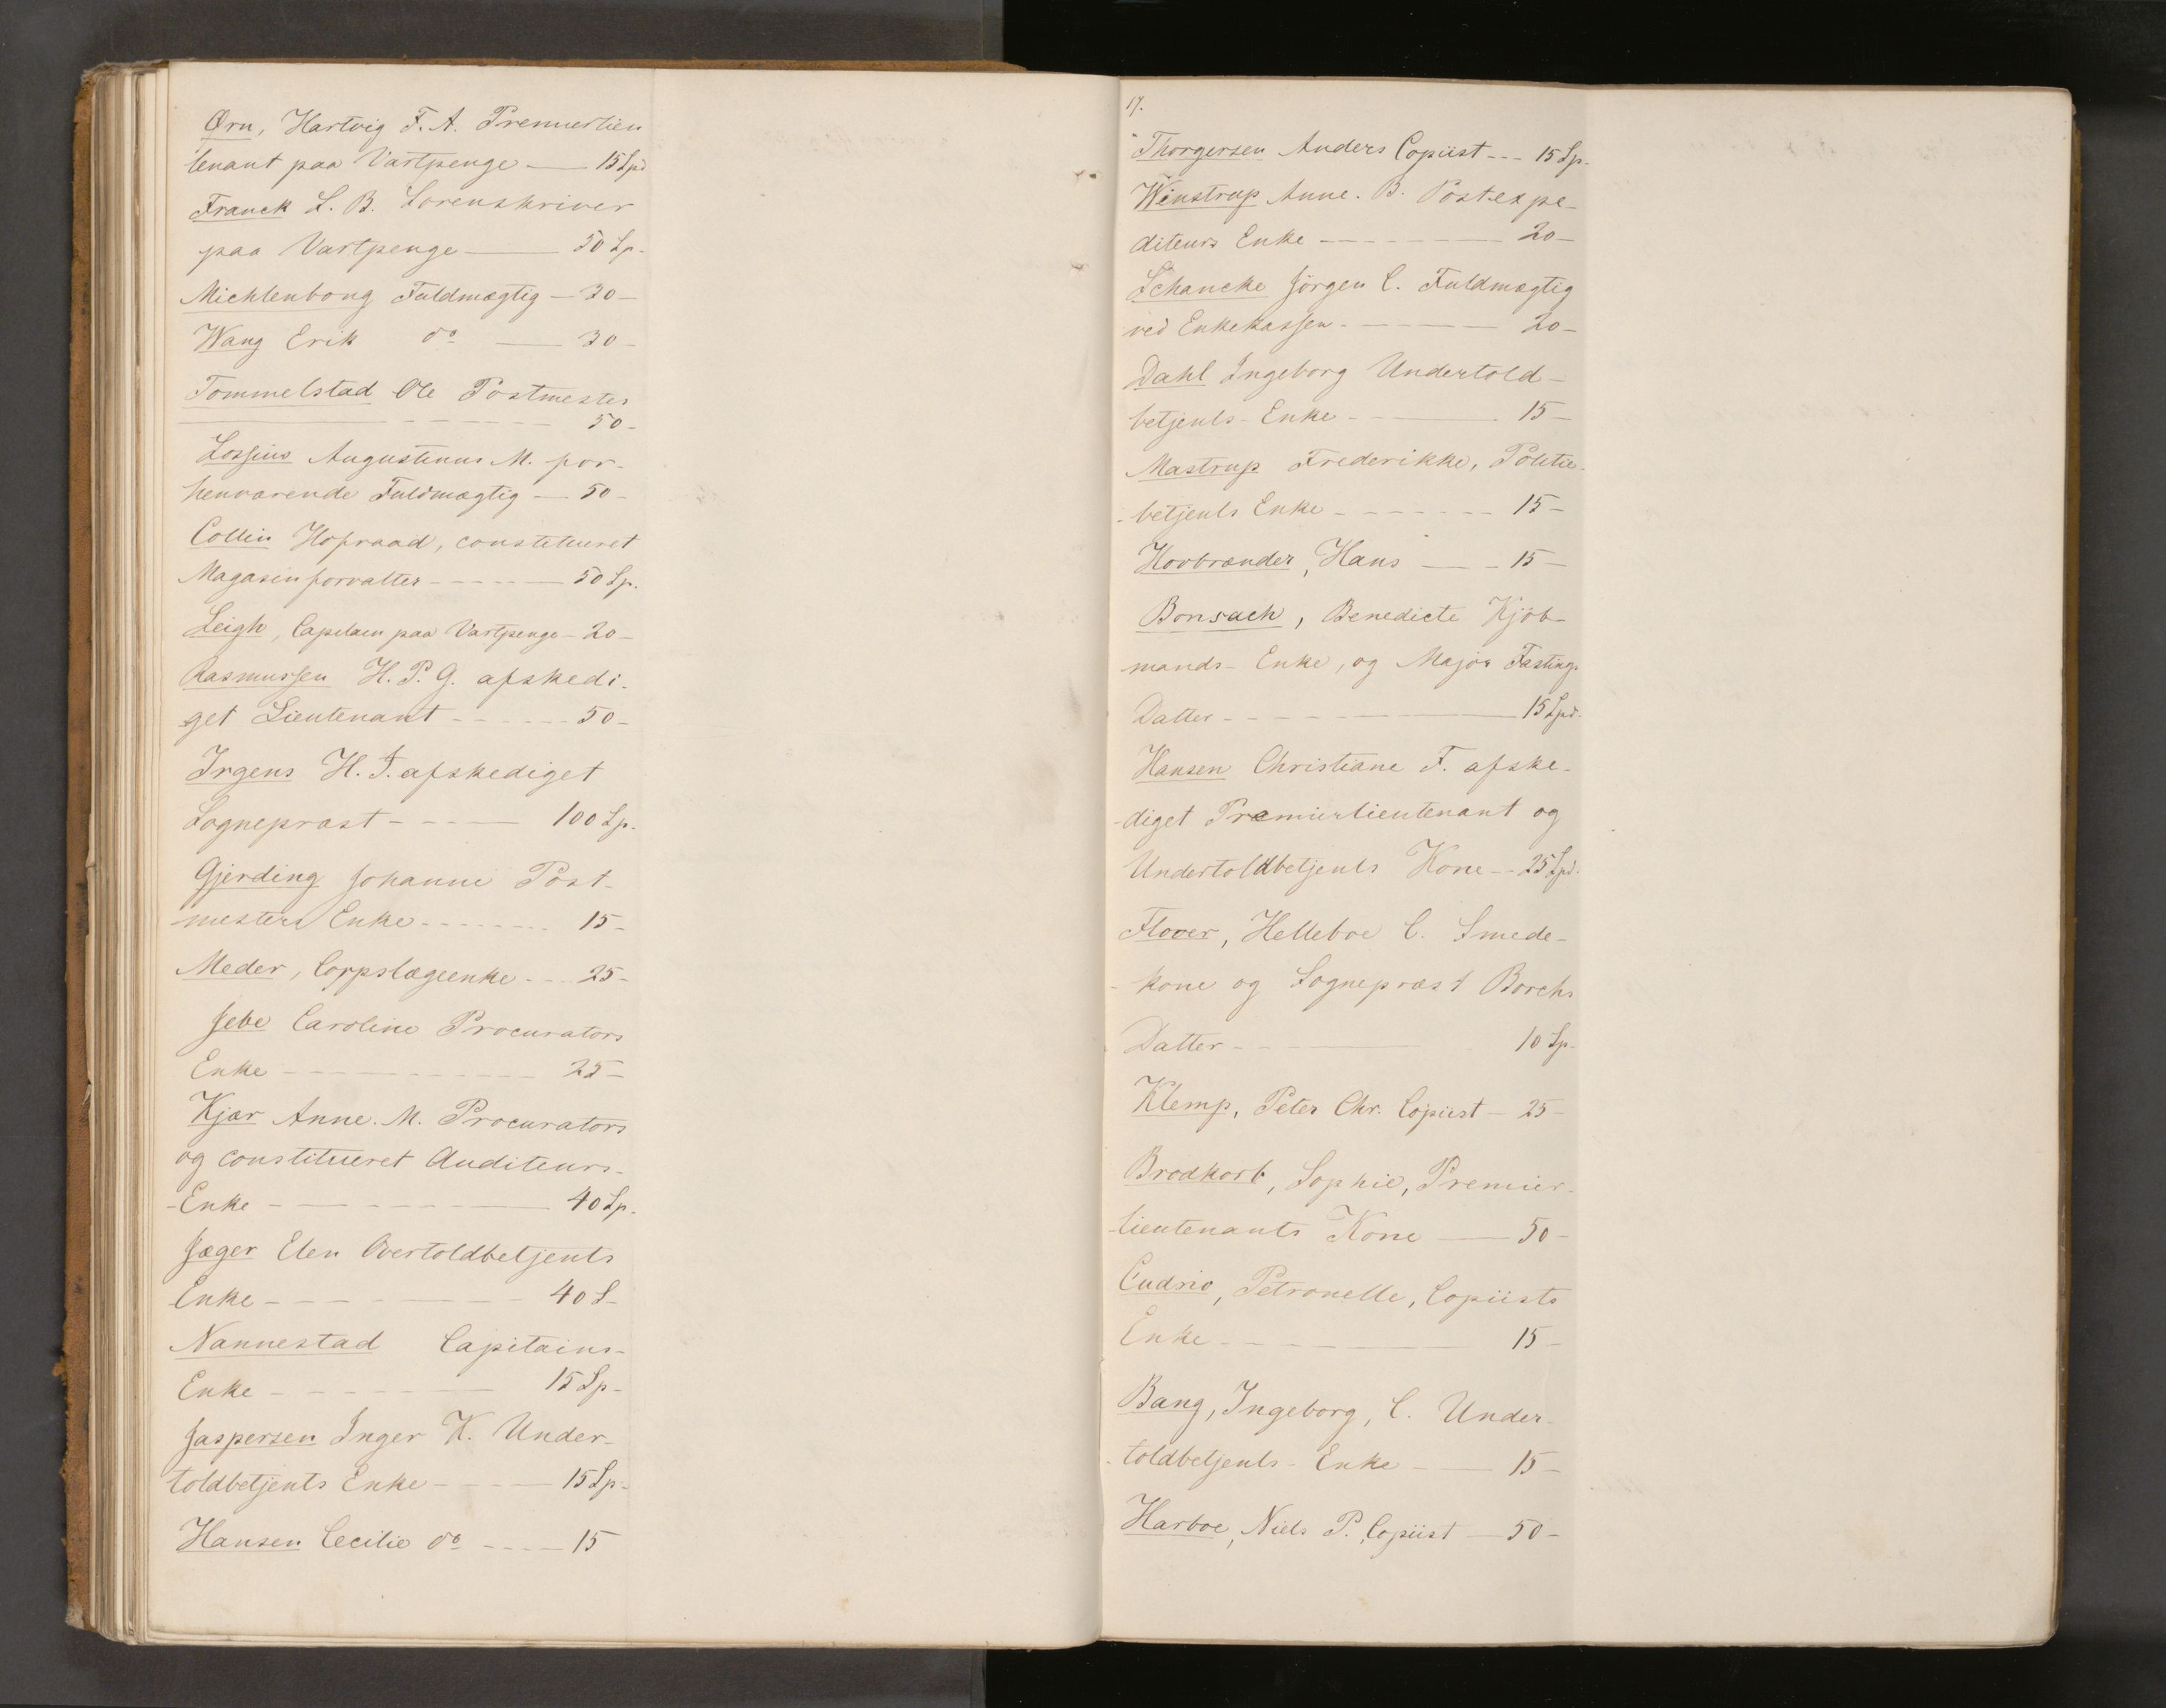 Ørn, Hartvig F. A. Premierlieu
tenant paa Vartpenge — 15 Spd
Franck S. B. Sorenskriver
paa Vartpenge — 50 Sp.
Michlenborg Fuldmægtig — 30 —
Wang Erik do — 30 —
Tommelstad Ole Postmester
— 50 —
Lossius Augustinus M. for-
henværende Fuldmægtig — 50 —
Collin Hofraad, constitueret
Magasinforvalter — 50 Sp.
Leigh, Capelaen paa Vartpenge — 20 —
Rasmussen H. P. G. afskedi-
get Lieutenant — 50 —
Irgens H. J. afskediget
Sognepræst — 100 Sp.
Gjerding Johanne Post-
mesters Enke — 15 —
Meder, Corpslægeenke — 25 —
Jebe Caroline Procurators
Enke — 25 —
Kjær Anne. M. Procurators
og constitueret Auditeurs-
-Enke — 40 Sp.
Jæger Elen Overtoldbetjents
Enke — 40 S —
Nannestad Capitains-
Enke — 15 Sp —
Jaspersen Inger K. Under-
toldbetjents Enke — 15 Sp —
Hansen Cecilie do — 15
17.
Thorgersen Anders Copiist — 15 Sp.
Winstrup Anne. B. Postexpe-
diteurs Enke — 20 —
Schancke Jörgen C. Fuldmægtig
ved Enkekassen — 20 —
Dahl Ingeborg Undertold-
betjents- Enke — 15 —
Mastrup Frederikke, Politie-
-betjents Enke — 15 —
Hovbrænder, Hans — 15 —
Bonsach, Benedicte Kjöb-
mands- Enke, og Major Fastings
Datter — 15 Spd.
Hansen Christiane F. afske-
-diget Premierlieutenant og
Undertoldbetjents Kone — 25 Spd.
Flover, Helleboe C. Smede-
- kone og Sognepræst Borchs
Datter — 10 Sp —
Klemp, Peter Chr. Copiist — 25 —
Brodkorb, Sophie, Premier-
-lieutenants Kone — 50 —
Cudrio, Petronelle, Copiists
Enke — 15 —
Bang, Ingeborg, C. Under-
-toldbetjents- Enke — 15 —
Harboe, Niels P. Copiist — 50 —